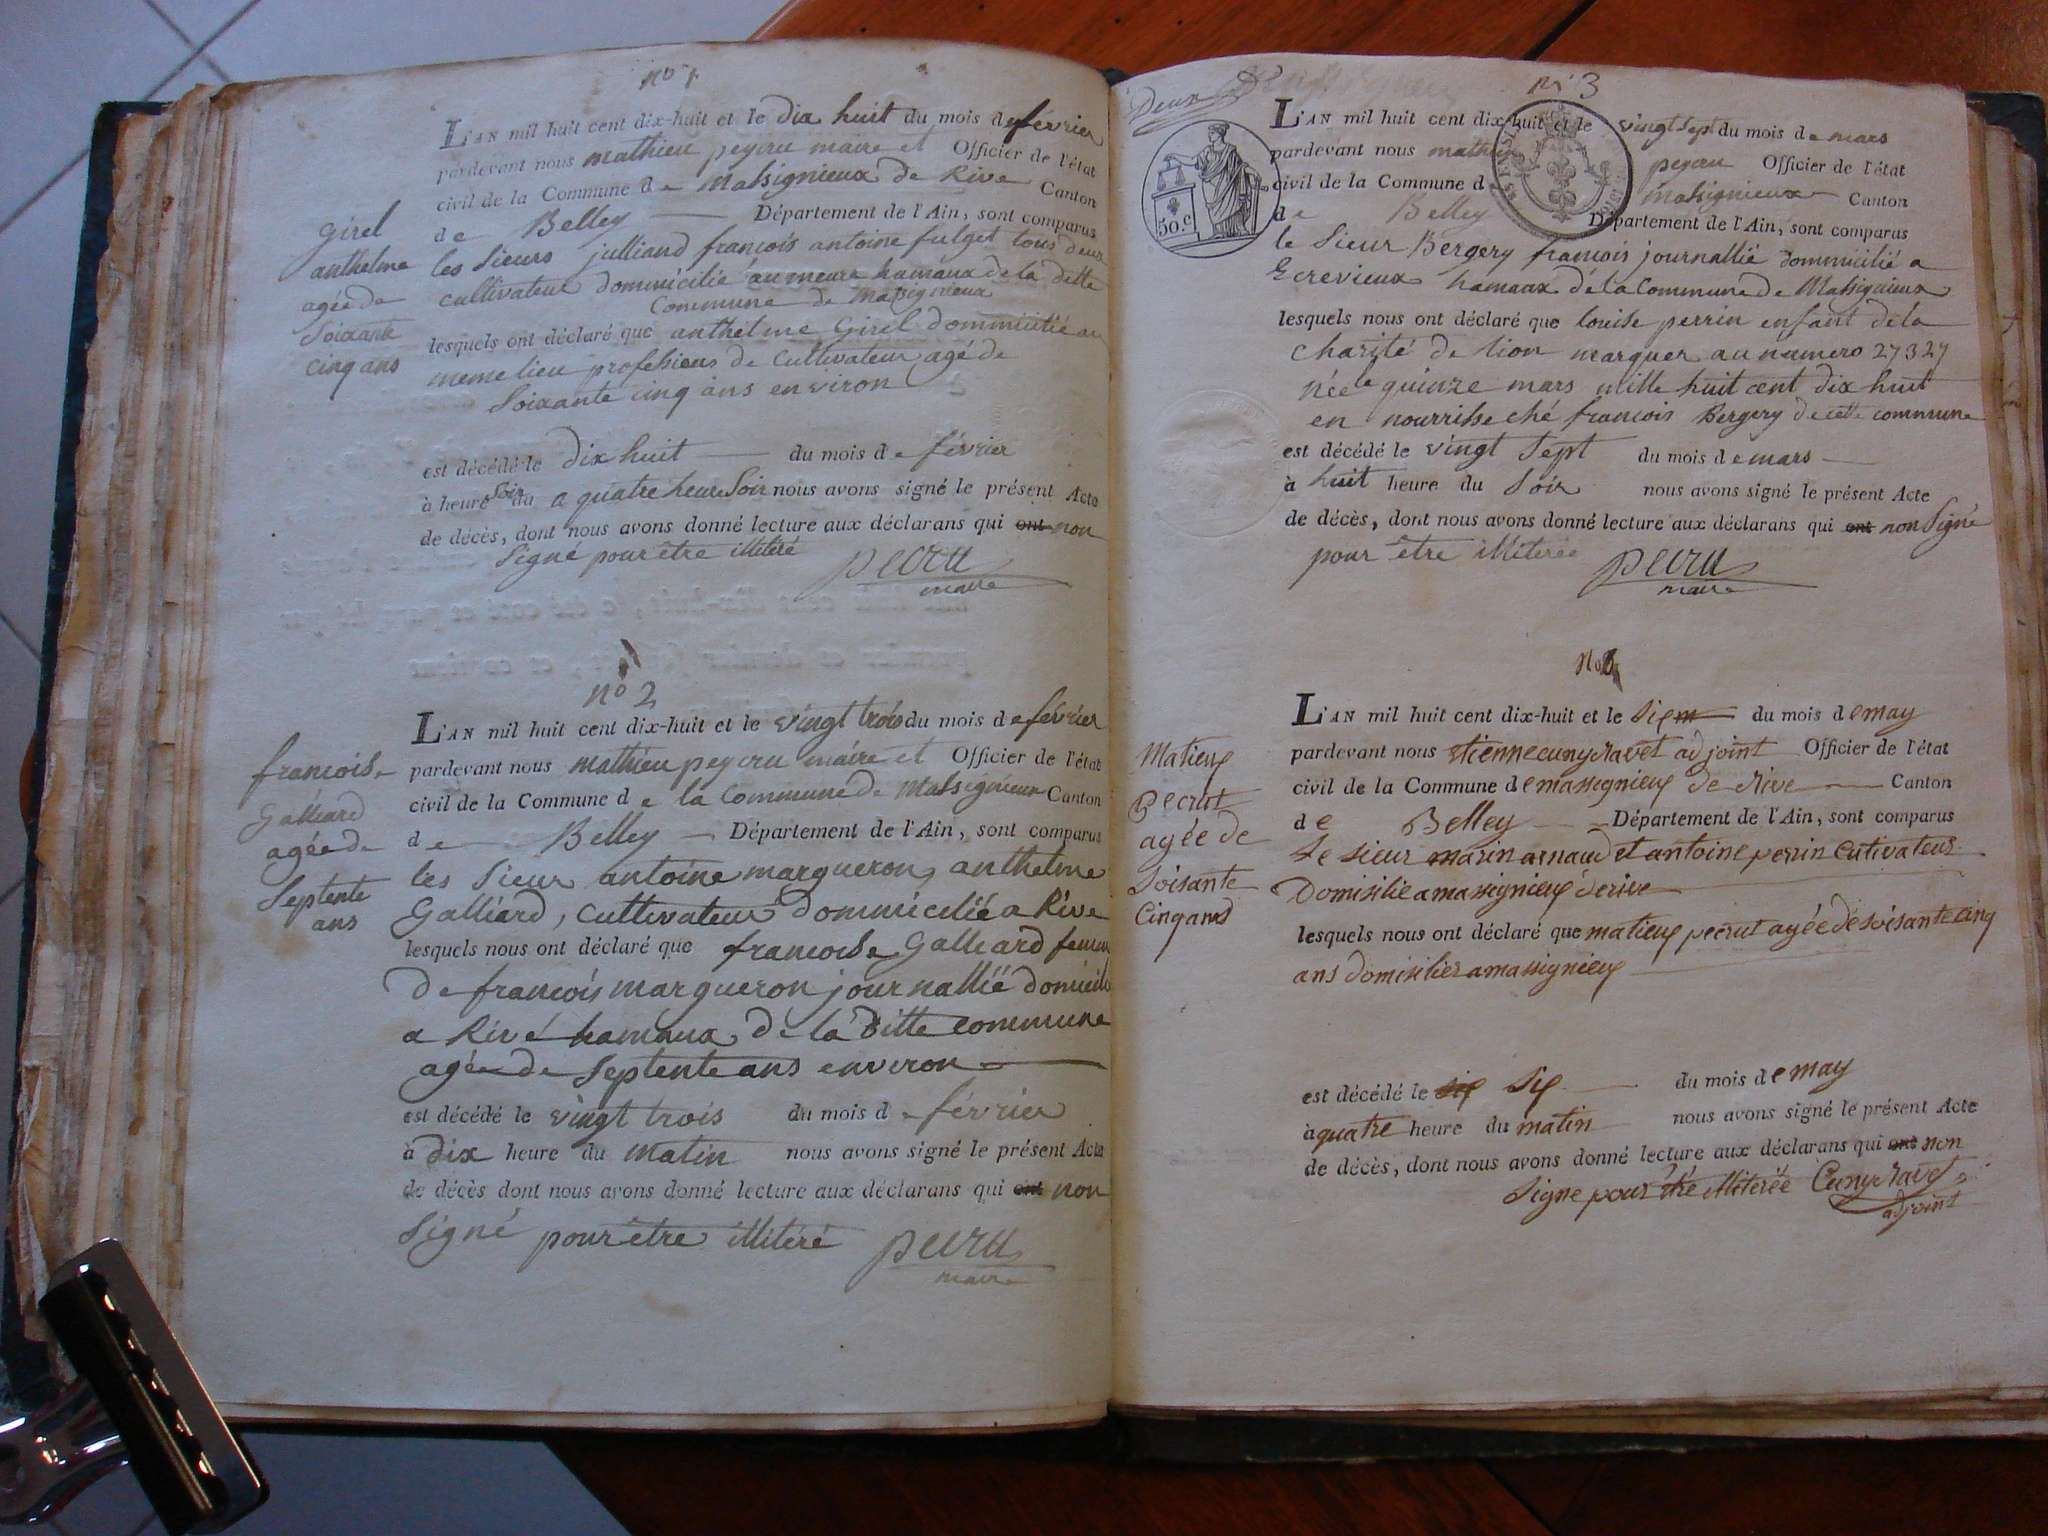 no 1
L'AN mil huit cent dix-huit et le dix huit du mois de février
pardevant nous mathieu peycru maire et Officier de l'état
civil de la Commune de Massignieux de Rive Canton
de Belley Département de l'Ain, sont comparus
les sieurs julliand françois antoine fulget tous deux
cultivateur dommicilié hamaux de la ditte
Commune de Massignieux
lesquels ont déclaré que anthelme Girel dommicilié au
meme lieu professions de Cultivateur agé de
Soixante cinq ans environ
est décédé le dix huit du mois de février
à heure Soir du a quatre heure Soir nous avons signé le présent Acte
de décès, dont nous avons donné lecture aux déclarans qui ont non
Signé pour être illitéré
pecru
maire
girel
anthelme
agée de
Soixante
cinq ans
no 2
L'AN mil huit cent dix-huit et le vingt trois du mois de février
pardevant nous mathieu peycru maire et Officier de l'état
civil de la Commune de la Commune de Massignieux Canton
de Belley Département de l'Ain, sont comparus
les Sieur antoine margueron, anthelme
Galliard, Cultivateur dommicilié a Rive
lesquels nous ont déclaré que francoise Galliard femme
de francois margueron journallié domicilié
a Rive hamaux de la Ditte commune
agée de Septente ans environ
est décédé le vingt trois du mois de février
à dix heure du matin nous avons signé le présent Acte
de décès dont nous avons donné lecture aux déclarans qui ont non
Signé pour être illitéré
pecru
maire
francoise
Galliard
agée de
Septente
ans
Deux
50. c
no 3
L'AN mil huit cent dix-huit et le vingt sept du mois de mars
pardevant nous mathieu peycru Officier de l'état
civil de la Commune d Massignieux Canton
de Belley Département de l'Ain, sont comparus
le Sieur Bergery francois journallié dommicilié a
Ecrevieux hamaux de la Commune de Massignieux
lesquels nous ont déclaré que louise perrin enfant de la
Charité de lion marquer au numero 27327
née le quinze mars mille huit cent dix huit
en nourrisse ché francois Bergery de cette commune
est décédé le vingt Sept du mois de mars
à huit heure du Soir nous avons signé le présent Acte
de décès, dont nous avons donné lecture aux déclarans qui ont non Signé
pour être illiterée
pecru
maire
L'AN mil huit cent dix-huit et le sie du mois de may
pardevant nous etienne cuny ravet adjoint Officier de l'état
civil de la Commune de massegnieux de rive Canton
de Belley Département de l'Ain, sont comparus
Le sieur marin arnaud et antoine perrin Cutivateur
Domisilie a massignieux de rive
lesquels nous ont déclaré que matieux pecrut agée de soisante cinq
ans domisilier a massignieux
est décédé le six six du mois de may
à quatre heure du matin nous avons signé le présent Acte
de décès, dont nous avons donné lecture aux déclarans qui ont non
Signe pour être illiterée Cuny ravet
adjoint
Matieux
Pecrut
agée de
Soisante
Cinq ans